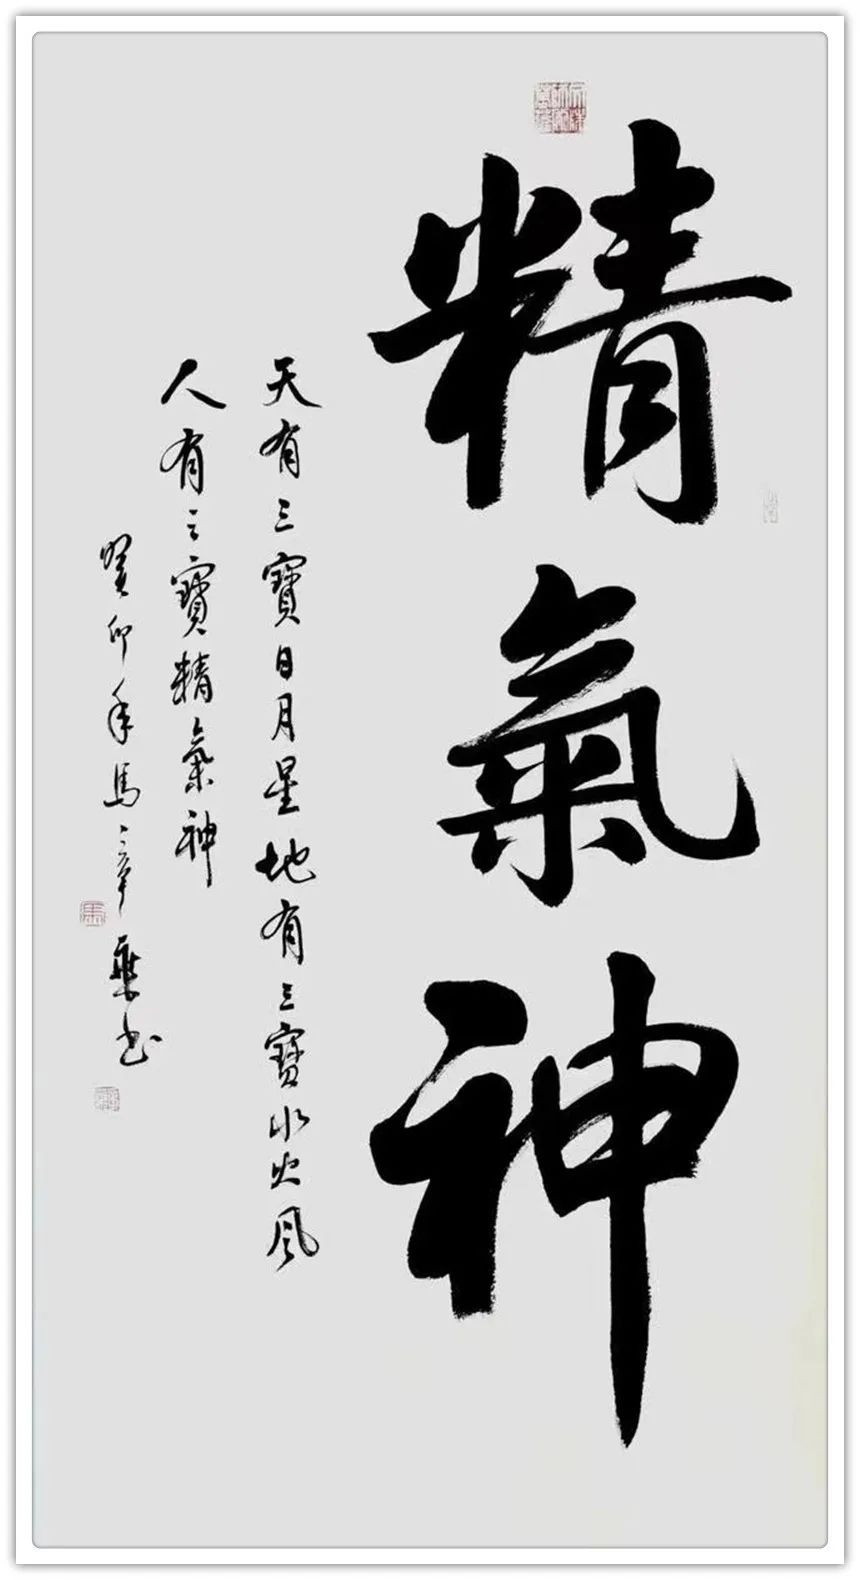 精氣神
天有三寶日月星地有三寶水火風
人有三寶精氣神
癸卯年馬三章葉书